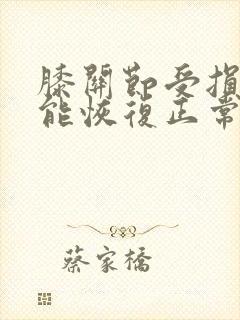 膝關節受損
能恢復正常
蔡家橋